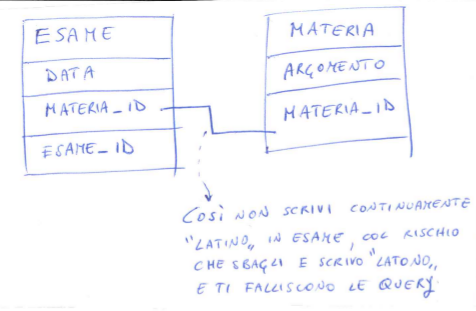 ESAME
DATA
MATERIA_ID
ESAME_ID
MATERIA
ARGOMENTO
MATERIA_ID
COSÌ NON SCRIVI CONTINUAMENTE
"LATINO„ IN ESAME, COL RISCHIO
CHE SBAGLI E SCRIVO "LATONO„
E TI FALLISCONO LE QUERY.